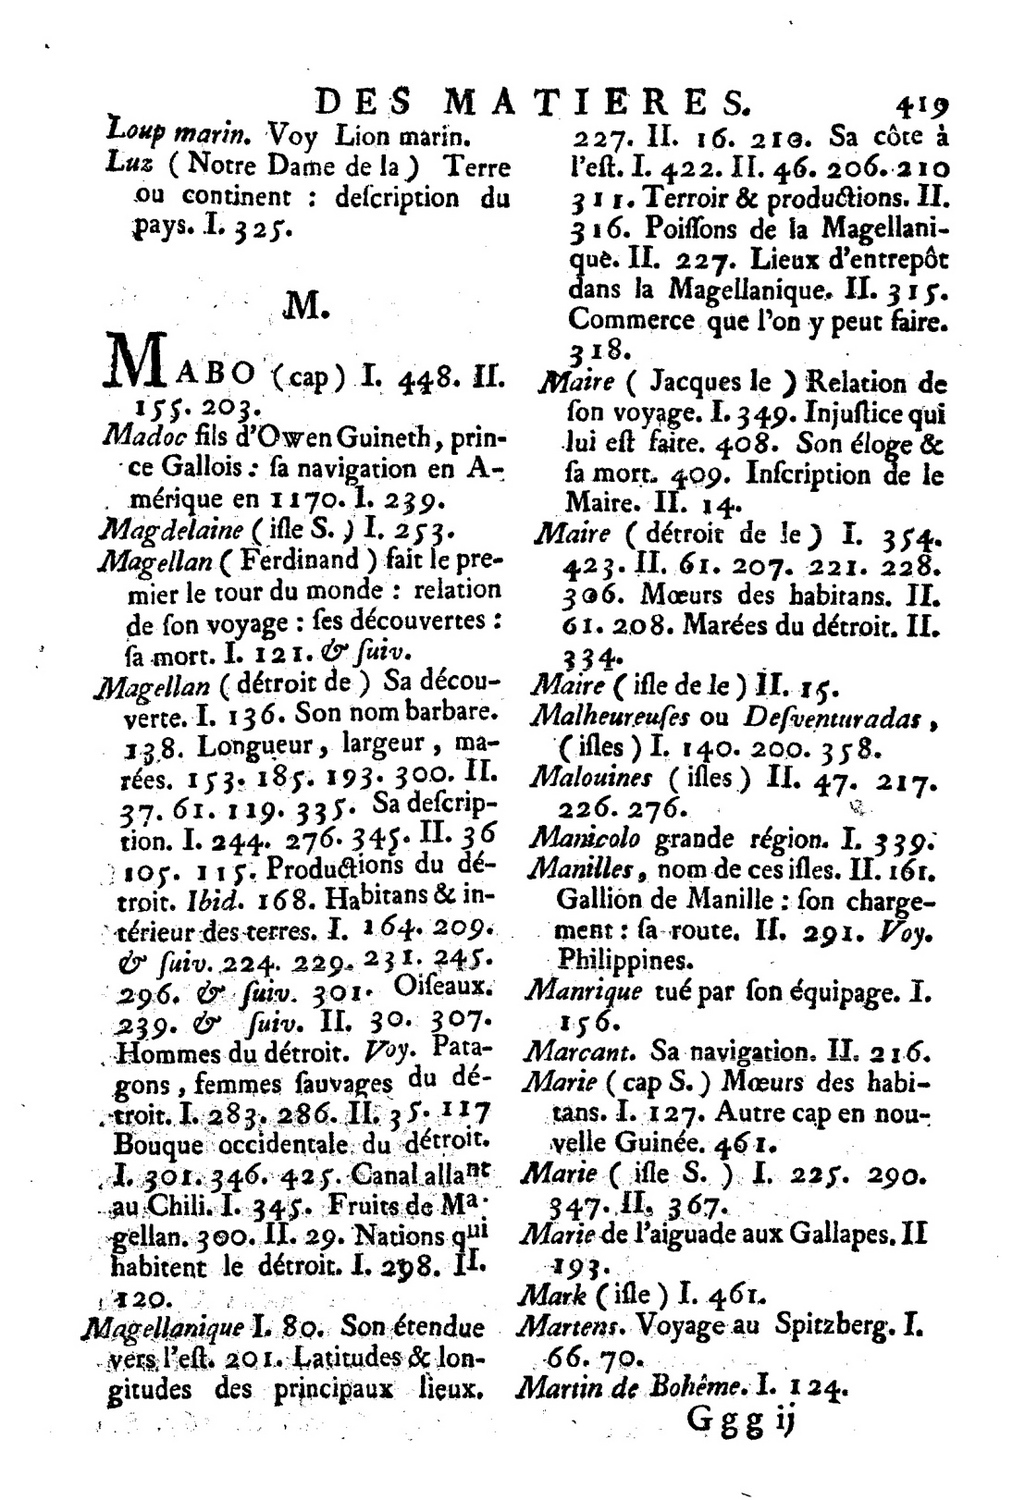 DES MATIERES. 419
Loup marin. Voy Lion marin.
Luz ( Notre Dame de la ) Terre
ou continent : deſcription du
pays. I. 325.
M.
MABO (cap) I. 448. II.
155. 203.
Madoc fils d'Owen Guineth, prin-
ce Gallois : ſa navigation en A-
mérique en 1170. I. 239.
Magdelaine ( iſle S. ) I. 253.
Magellan ( Ferdinand ) fait le pre-
mier le tour du monde : relation
de ſon voyage : ſes découvertes :
ſa mort. I. 121. & ſuiv.
Magellan ( détroit de ) Sa décou-
verte. I. 136. Son nom barbare.
138. Longueur, largeur, ma-
rées. 153. 185. 193. 300. II.
37. 61. 119. 335. Sa deſcrip-
tion. I. 244. 276. 345. II. 36
105. 115. Productions du dé-
troit. Ibid. 168. Habitans & in-
térieur des terres. I. 164. 209.
& ſuiv. 224. 229. 231. 245.
296. & ſuiv. 301. Oiſeaux.
239. & ſuiv. II. 30. 307.
Hommes du détroit. Voy. Pata-
gons, femmes ſauvages du dé-
troit. I. 283. 286. II. 35. 117
Bouque occidentale du détroit.
I. 301. 346. 425. Canal allant
au Chili. I. 345. Fruits de Ma-
gellan. 300. II. 29. Nations qui
habitent le détroit. I. 298. II.
120.
Magellanique I. 80. Son étendue
vers l'eſt. 201. Latitudes & lon-
gitudes des principaux lieux.
227. II. 16. 210. Sa côte à
l'eſt. I. 422. II. 46. 206. 210
311. Terroir & productions. II.
316. Poiſſons de la Magellani-
que. II. 227. Lieux d'entrepôt
dans la Magellanique. II. 315.
Commerce que l'on y peut faire.
318.
Maire ( Jacques le ) Relation de
ſon voyage. I. 349. Injuſtice qui
lui eſt faite. 408. Son éloge &
ſa mort. 409. Inſcription de le
Maire. II. 14.
Maire ( détroit de le ) I. 354.
423. II. 61. 207. 221. 228.
306. Mœurs des habitans. II.
61. 208. Marées du détroit. II.
334.
Maire ( iſle de le ) II. 15.
Malheureuſes ou Deſventuradas,
( iſles ) I. 140. 200. 358.
Malouines ( iſles ) II. 47. 217.
226. 276.
Manicolo grande région. I. 339.
Manilles, nom de ces iſles. II. 161.
Gallion de Manille : ſon charge-
ment : ſa route. II. 291. Voy.
Philippines.
Manrique tué par ſon équipage. I.
156.
Marcant. Sa navigation. II. 216.
Marie ( cap S. ) Mœurs des habi-
tans. I. 127. Autre cap en nou-
velle Guinée. 461.
Marie ( iſle S. ) I. 225. 290.
347. II. 367.
Marie de l'aiguade aux Gallapes. II
193.
Mark ( iſle ) I. 461.
Martens. Voyage au Spitzberg. I.
66. 70.
Martin de Bohême. I. 124.
Ggg ij